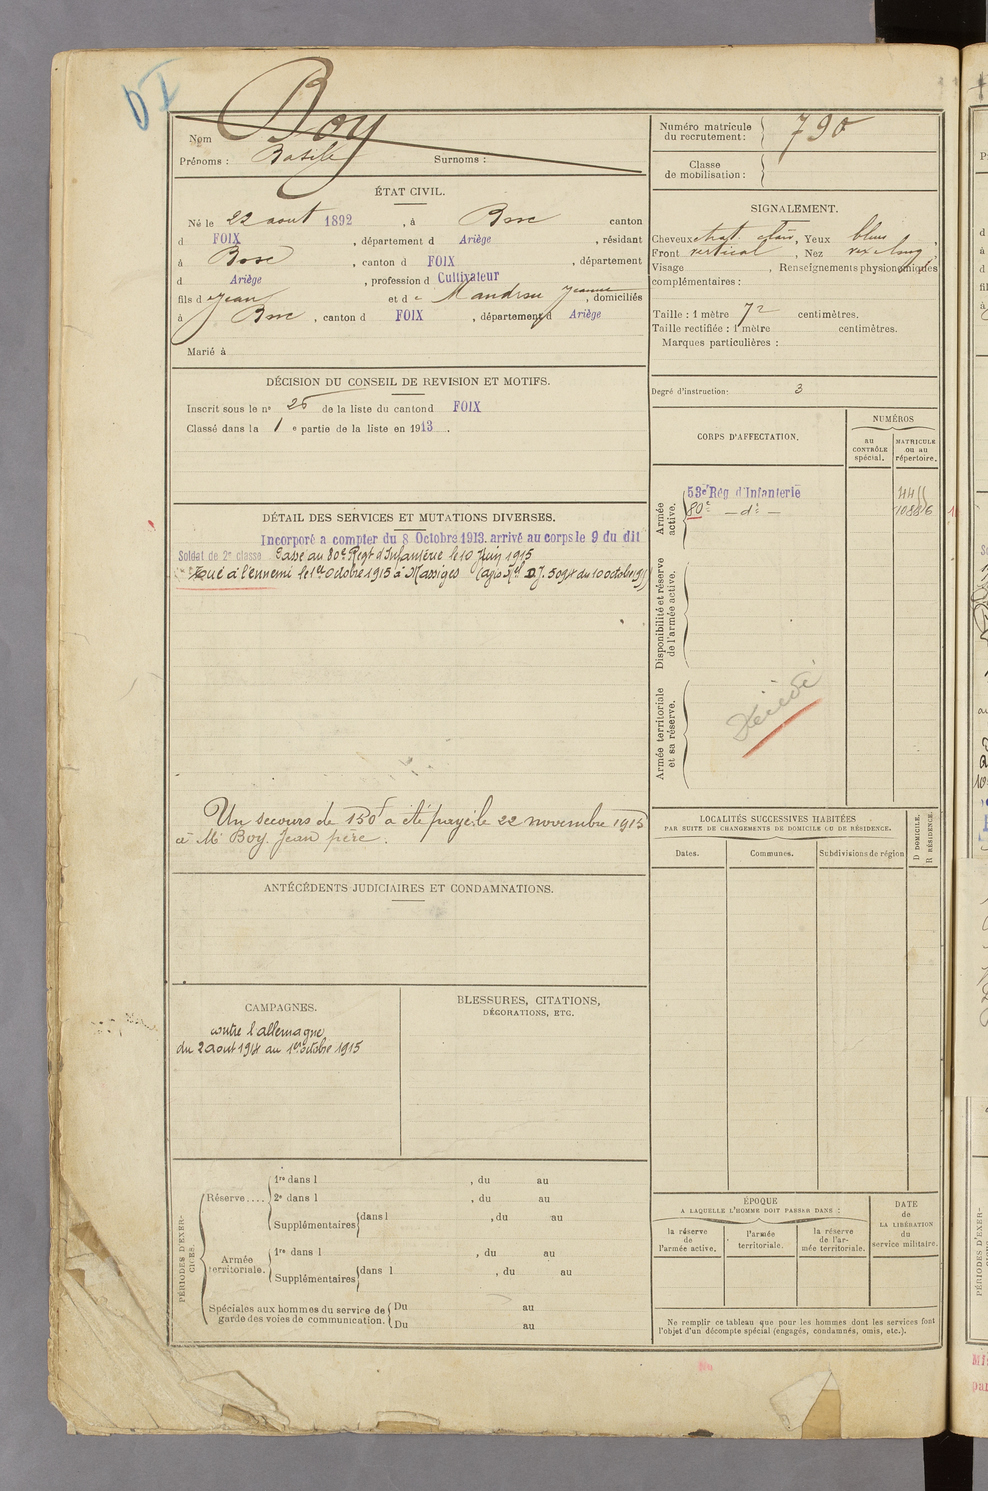 DI
Nom Boy
Prénoms : Basile Surnoms :
ÉTAT CIVIL.
Né le 22 aout 1892, à Bosc canton
d FOIX, département d Ariège, résidant
à Bosc, canton d FOIX, département
d Ariège, profession d Cultivateur
fils d e Jean et d e Mandrou Jeanne, domiciliés
à Bosc, canton d FOIX, département d Ariège
Marié à
DÉCISION DU CONSEIL DE REVISION ET MOTIFS.
Inscrit sous le nº 26 de la liste du canton d FOIX
Classé dans la 1 e partie de la liste en 1913.
DÉTAIL DES SERVICES ET MUTATIONS DIVERSES.
Incorporé a compter du 8 Octobre 1913. arrivé au corps le 9 du dit
Soldat de 2e classe Passé au 80e Regt d'Infanterie le 10 Juin 1915
Tué à l'ennemi le 1er Octobre 1915 à Massiges (avis Mel D J. 5094 du 10 octobre 1915)
Un secours de 150f a été payé le 22 novembre 1915
à Mr Boy Jean père.
ANTÉCÉDENTS JUDICIAIRES ET CONDAMNATIONS.
CAMPAGNES.
contre l'allemagne
du 2 aout 1914 au 1er octobre 1915
BLESSURES, CITATIONS,
DÉCORATIONS, ETC.
PÉRIODES D'EXERCICES.
Réserve....
1re dans l , du au
2e dans l , du au
Supplémentaires dans l , du au
Armée territoriale.
1re dans l , du au
Supplémentaires dans l , du au
Spéciales aux hommes du service de garde des voies de communication.
Du au
Du au
Numéro matricule
du recrutement : 790
Classe
de mobilisation :
SIGNALEMENT.
Cheveux chat. clair, Yeux bleus,
Front vertical, Nez rex. long,
Visage , Renseignements physionomiques
complémentaires :
Taille : 1 mètre 72 centimètres.
Taille rectifiée : 1 mètre centimètres.
Marques particulières :
Degré d'instruction : 3
CORPS D'AFFECTATION.
NUMÉROS
au
CONTRÔLE
spécial.
MATRICULE
ou au
répertoire.
Armée active.
53e Rég d'Infanterie
80e — do —
10886
Disponibilité et réserve de l'armée active.
Armée territoriale et sa réserve.
Décédé
LOCALITÉS SUCCESSIVES HABITÉES
PAR SUITE DE CHANGEMENTS DE DOMICILE OU DE RÉSIDENCE.
Dates.
Communes.
Subdivisions de région
D DOMICILE.
R RÉSIDENCE.
ÉPOQUE
A LAQUELLE L'HOMME DOIT PASSER DANS :
la réserve
de
l'armée active.
l'armée
territoriale.
la réserve
de l'ar-
mée territoriale.
DATE
de
LA LIBÉRATION
du
service militaire.
Ne remplir ce tableau que pour les hommes dont les services font
l'objet d'un décompte spécial (engagés, condamnés, omis, etc.).
PÉRIODES D'EXER-